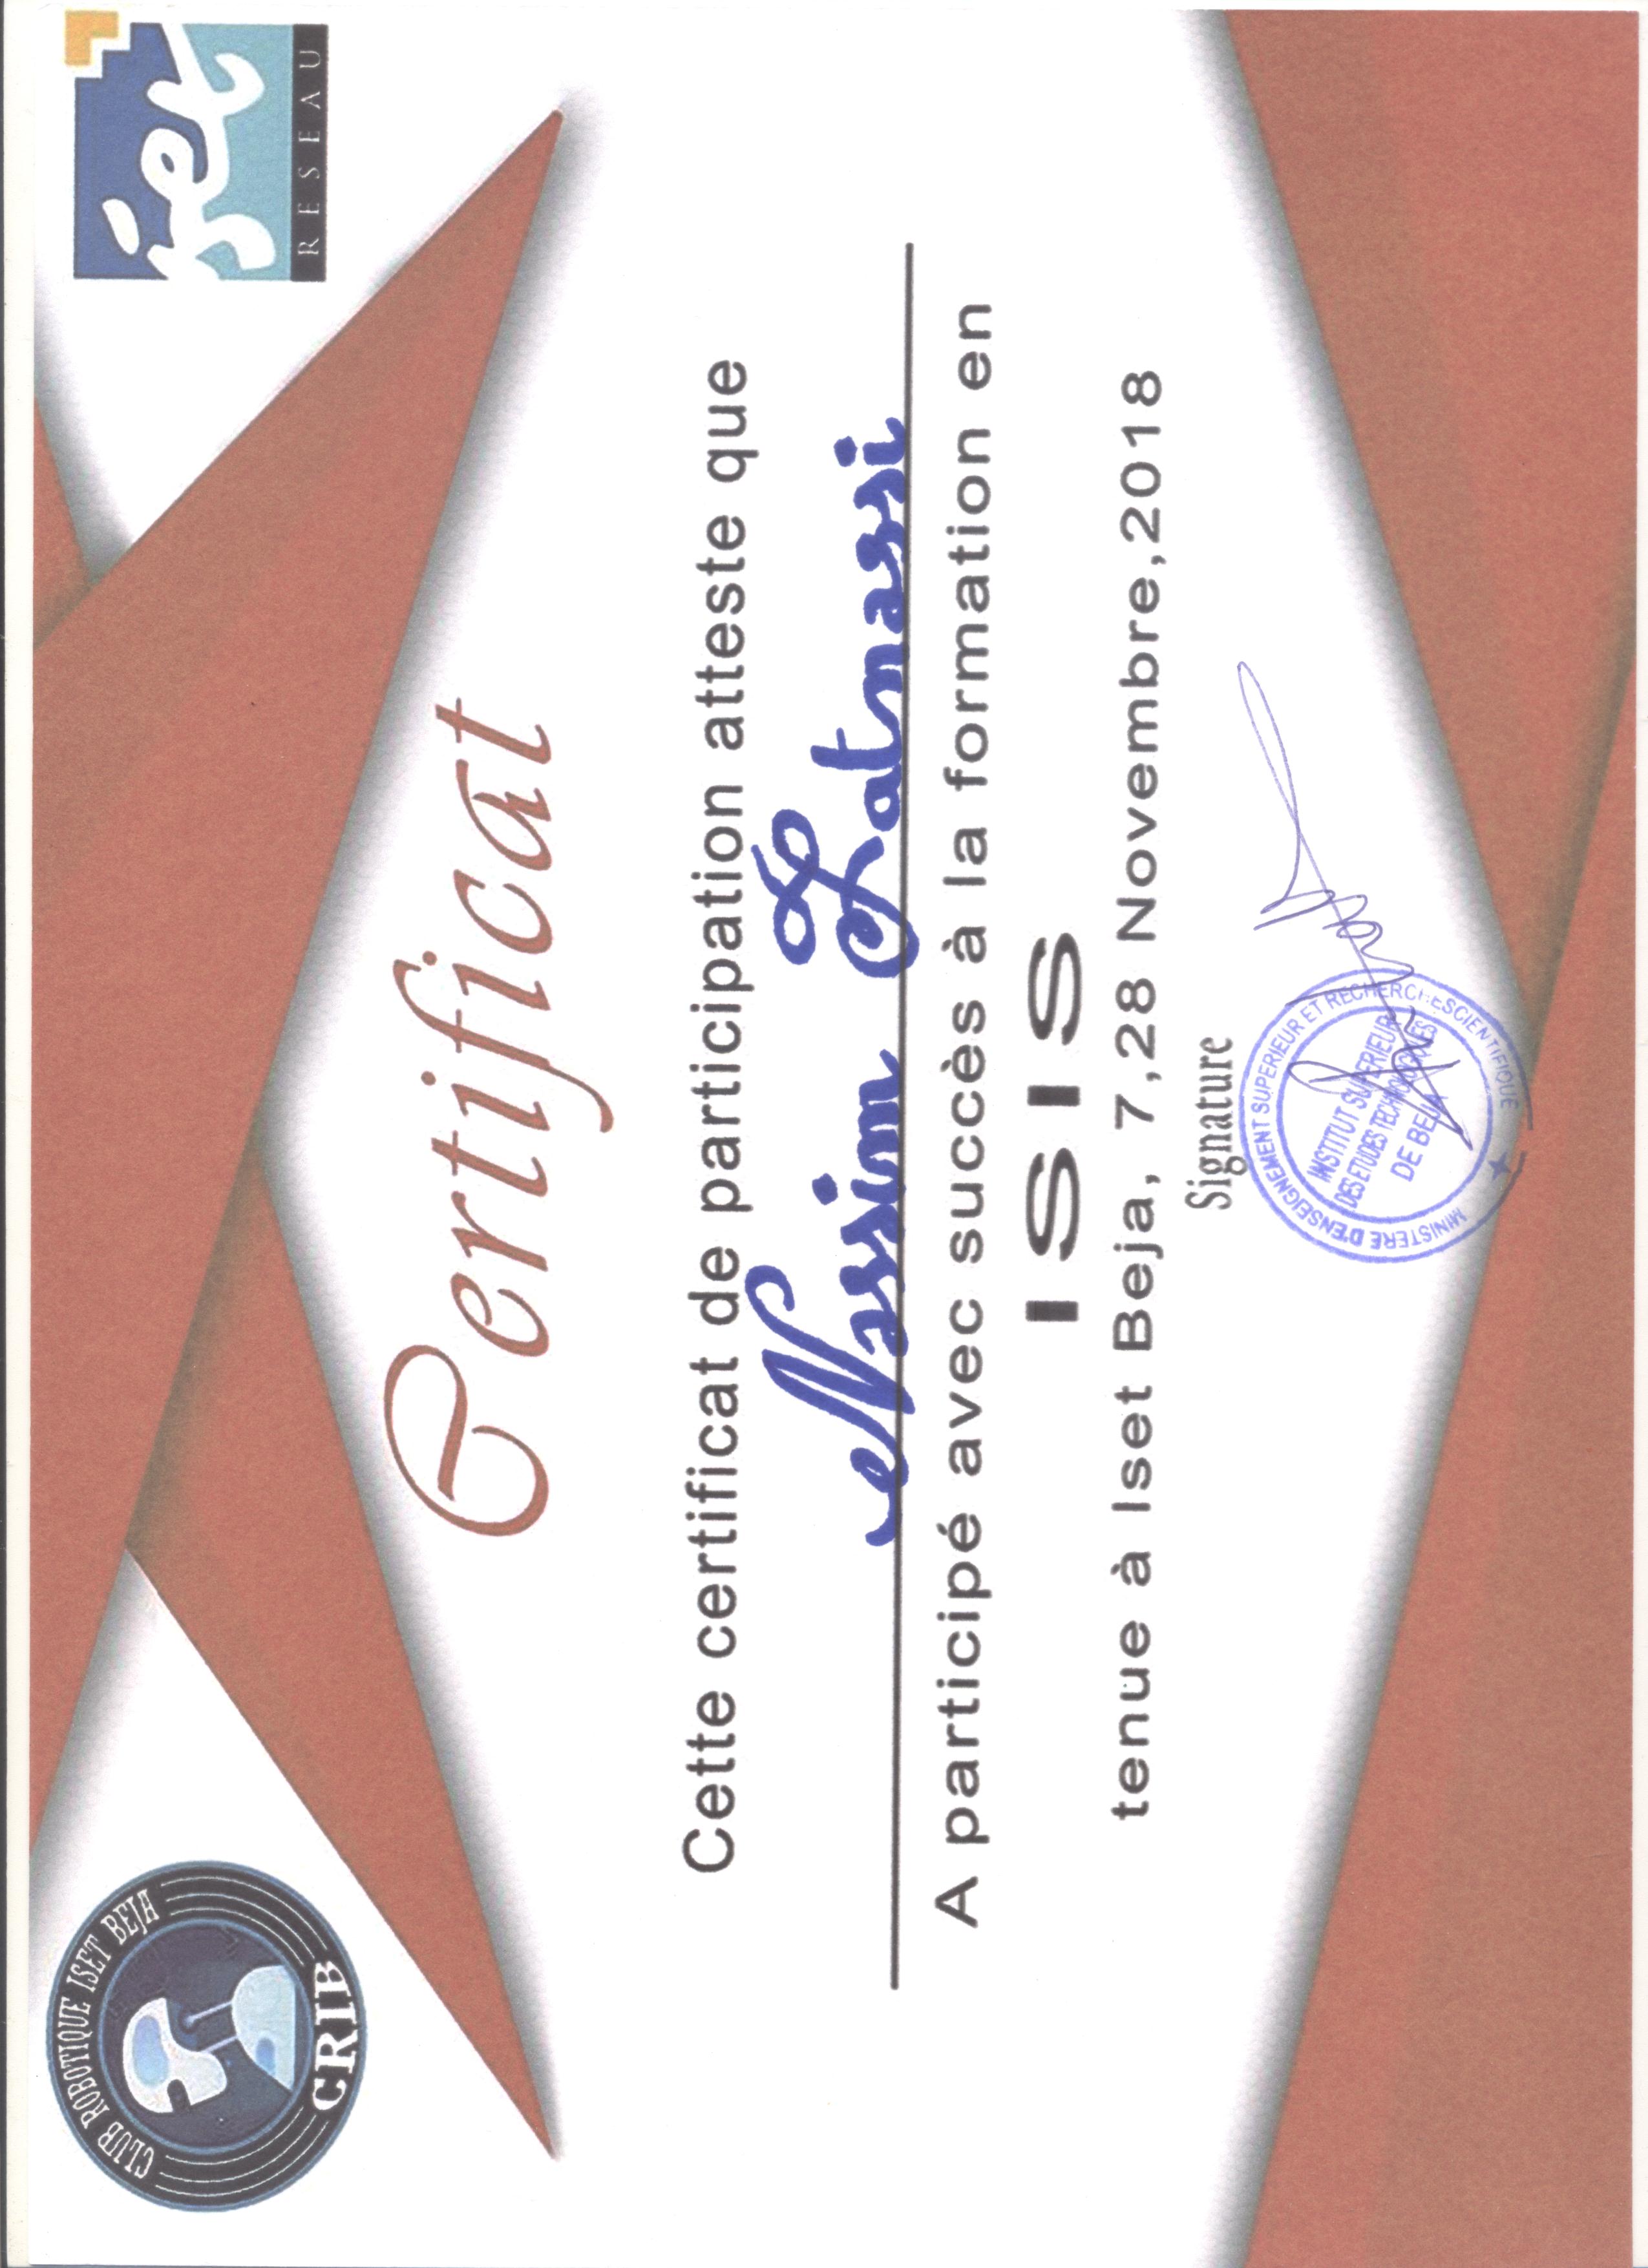 CLUB ROBOTIQUE ISET BEJA
CRIB
iset
RESEAU
Certificat
Cette certificat de participation atteste que
Nassim Fatnassi
A participé avec succès à la formation en
ISIS
tenue à Iset Beja, 7,28 Novembre,2018
Signature
MINISTERE D'ENSEIGNEMENT SUPERIEUR ET RECHERCHE SCIENTIFIQUE
INSTITUT SUPERIEUR
DES ETUDES TECHNOLOGIQUES
DE BEJA